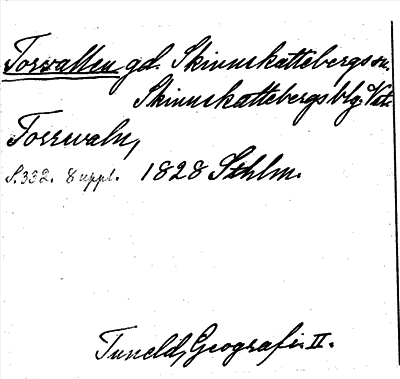 Torvallen gd. Skinnskattebergs sn.
Skinnskattebergs blg. Vstm.
Torrwaln,
S. 332. 8 uppl. 1828 Sthlm.
Tuneld, Geografi II.